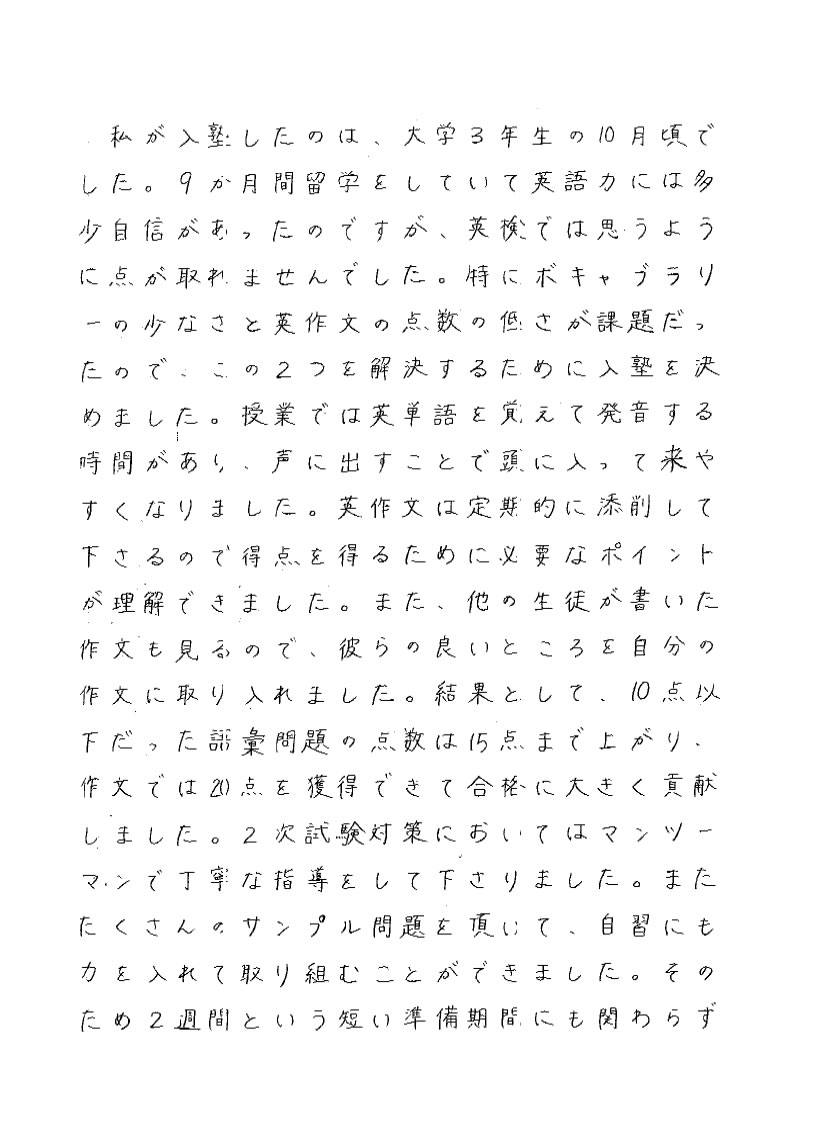 私が入塾したのは、大学3年生の10月頃で
した。9か月間留学をしていて英語力には多
少自信があったのですが、英検では思うよう
に点が取れませんでした。特にボキャブラリ
ーの少なさと英作文の点数の低さが課題だっ
たので、この2つを解決するために入塾を決
めました。授業では英単語を覚えて発音する
時間があり、声に出すことで頭に入って来や
すくなりました。英作文は定期的に添削して
下さるので得点を得るために必要なポイント
が理解できました。また、他の生徒が書いた
作文も見るので、彼らの良いところを自分の
作文に取り入れました。結果として、10点以
下だった語彙問題の点数は15点まで上がり、
作文では20点を獲得できて合格に大きく貢献
しました。2次試験対策においてはマンツー
マンで丁寧な指導をして下さりました。また
たくさんのサンプル問題を頂いて、自習にも
力を入れて取り組むことができました。その
ため2週間という短い準備期間にも関わらず